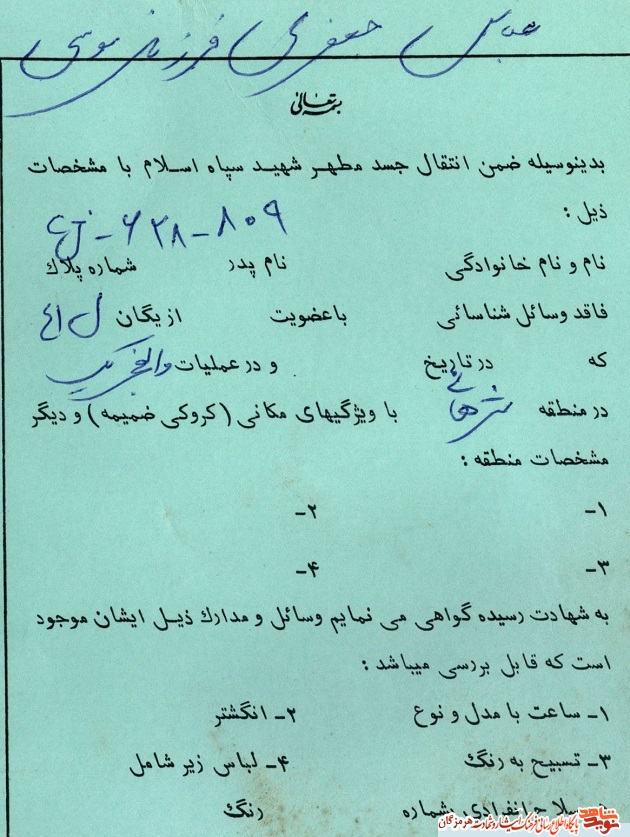 عباس جعفری فرزند موسی
بسمه تعالی
بدینوسیله ضمن انتقال جسد مطهر شهید سپاه اسلام با مشخصات
ذیل : ۸۰۹-۶۲۸-
نام و نام خانوادگی نام پدر شماره پلاک
فاقد وسائل شناسائی با عضویت از یگان ل ۴۱
که در تاریخ و در عملیات والفجر یک
در منطقه شرهانی با ویژگیهای مکانی (کروکی ضمیمه) و دیگر
مشخصات منطقه :
۱- ۲-
۳- ۴-
به شهادت رسیده گواهی می نمایم وسائل و مدارک ذیل ایشان موجود
است که قابل بررسی میباشد :
۱- ساعت با مدل و نوع ۲- انگشتر
۳- تسبیح به رنگ ۴- لباس زیر شامل
سلاح انفرادی بشماره رنگ
نوید شاهد پایگاه اطلاع رسانی فرهنگ ایثار و شهادت هرمزگان